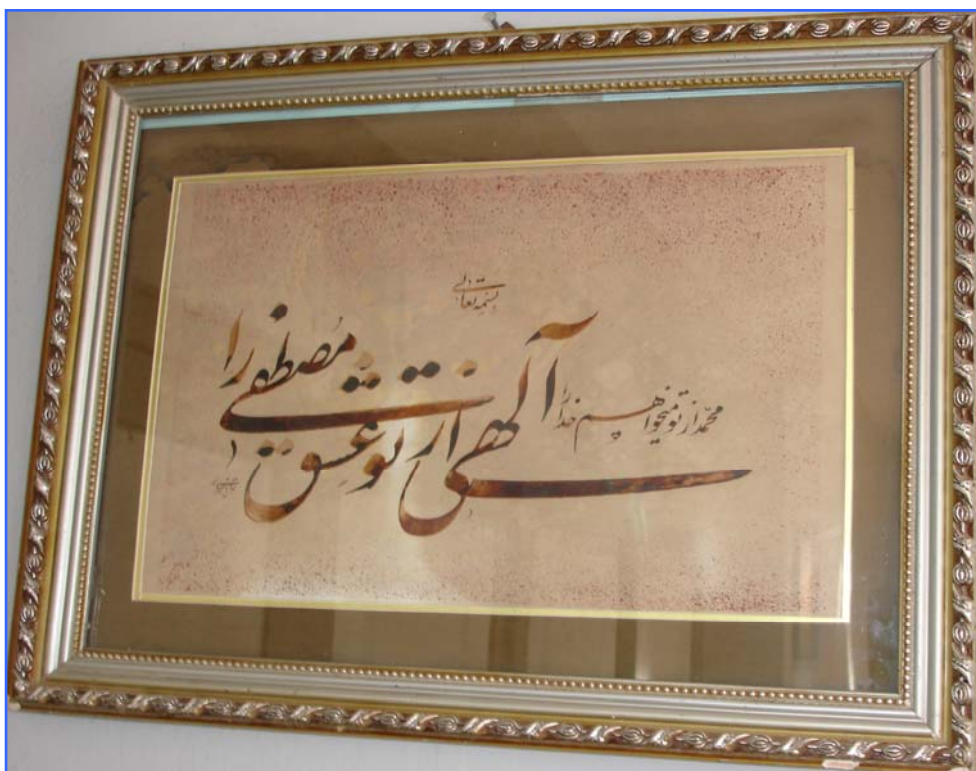 بسمه تعالی
محمد از تو میخواهم خدا را
الهی از تو عشق مصطفی را